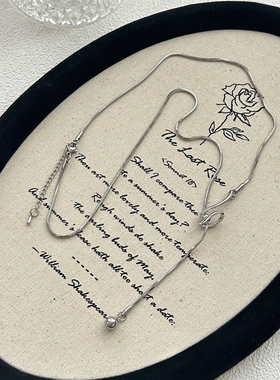 The Last Rose
《Sonnet 18》
Shall I compare thee
to a summer's day?
Thou art more lovely and more temperate.
Rough winds do shake
the darling buds of May,
And summer's lease hath all too short a date.
—William Shakespeare